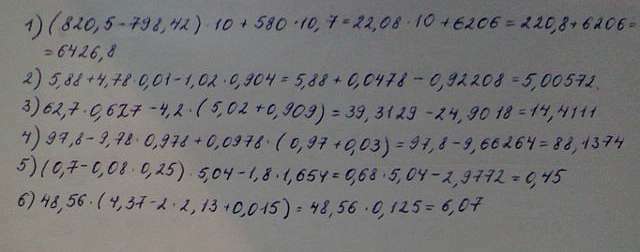 1) (820,5-798,42)·10+580·10,7=22,08·10+6206=220,8+6206=
=6426,8
2) 5,88+4,78·0,01-1,02·0,904=5,88+0,0478-0,92208=5,00572.
3) 62,7·0,627-4,2·(5,02+0,909)=39,3129-24,9018=14,4111
4) 97,8-9,78·0,978+0,0978·(0,97+0,03)=97,8-9,66264=88,1374
5) (0,7-0,08·0,25)·5,04-1,8·1,654=0,68·5,04-2,9772=0,45
6) 48,56·(4,37-2·2,13+0,015)=48,56·0,125=6,07